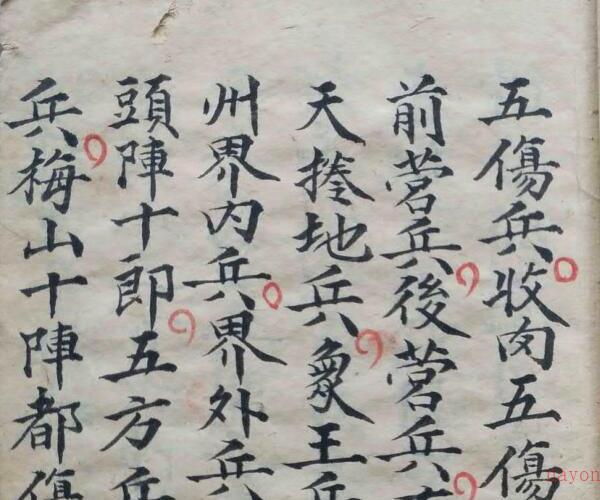 五傷兵收肉五傷
前营兵後营兵
天捲地兵象王兵
州界内兵界外兵
頭陣十郎五方兵
兵梅山十陣都傷
nayon